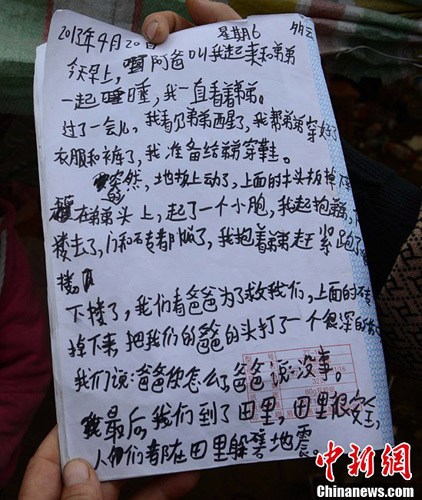 2013年4月20日 星期6
今天早上,阿爸叫我起来和弟弟
一起睡睡,我一直看着弟弟。
过了一会儿,我看见弟弟西星了,我帮弟弟穿好了
衣服和裤了,我准备给弟弟穿鞋。
突然,地板上动了,上面的木头板掉
在弟弟头上,起了一个小胞,我起抱弟弟
楼去了,门和专都了,我抱着弟弟走王紧跑了
楼。
下楼了,我们看爸爸为了救我们,上面的专
掉下来把我们的爸的头打了一个很深的
我们说:爸爸你怎么了,爸爸说:没事。
我最后,我们到了田里,田里很安全,
人们们都在田里躲壁地震。
中新网
Chinanews.com